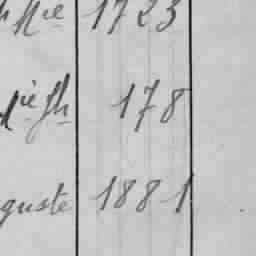 h Mie 1723
ie Jh 178
guste 1881